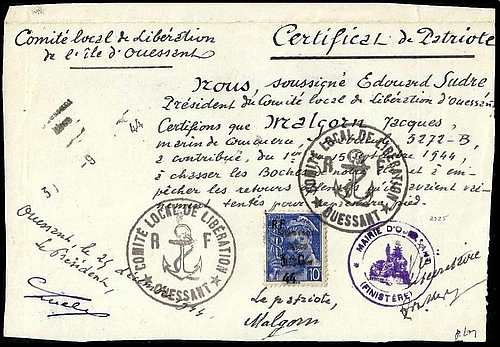 Comité local de Libération
de l'île d'Ouessant
Certificat de Patriote
Nous, soussigné Edouard Sudré
Président du Comité local de Libération d'Ouessant
Certifions que Malgorn Jacques,
marin de Commerce, 3272-B,
a contribué, du 1er 15 Septembre 1944,
à chasser les Boches et à em-
pêcher les retours qu'ils auraient
tentés pour reprendre pied.
COMITÉ LOCAL DE LIBÉRATION
R F
OUESSANT
COMITÉ LOCAL DE LIBÉRATION
R F
OUESSANT
Ouessant, le
le Président,
RF
44
10
MAIRIE D'OUESSANT
(FINISTÈRE)
Secrétaire
Le patriote,
Malgorn